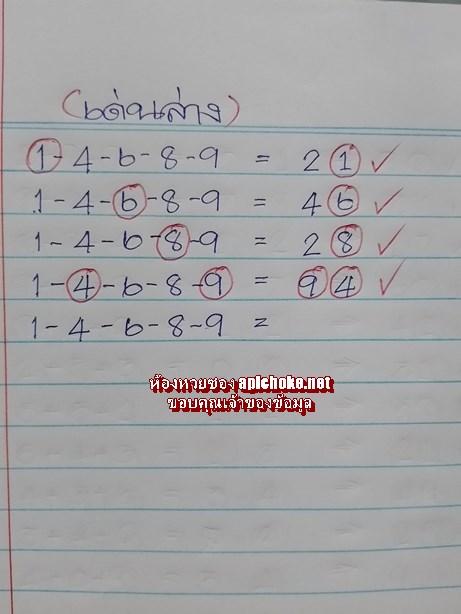 (เด่นล่าง)
1-4-6-8-9 = 21 ✓
1-4-6-8-9 = 46 ✓
1-4-6-8-9 = 28 ✓
1-4-6-8-9 = 94 ✓
1-4-6-8-9 =
ห้องหวยซอง apichoke.net
ขอบคุณเจ้าของข้อมูล